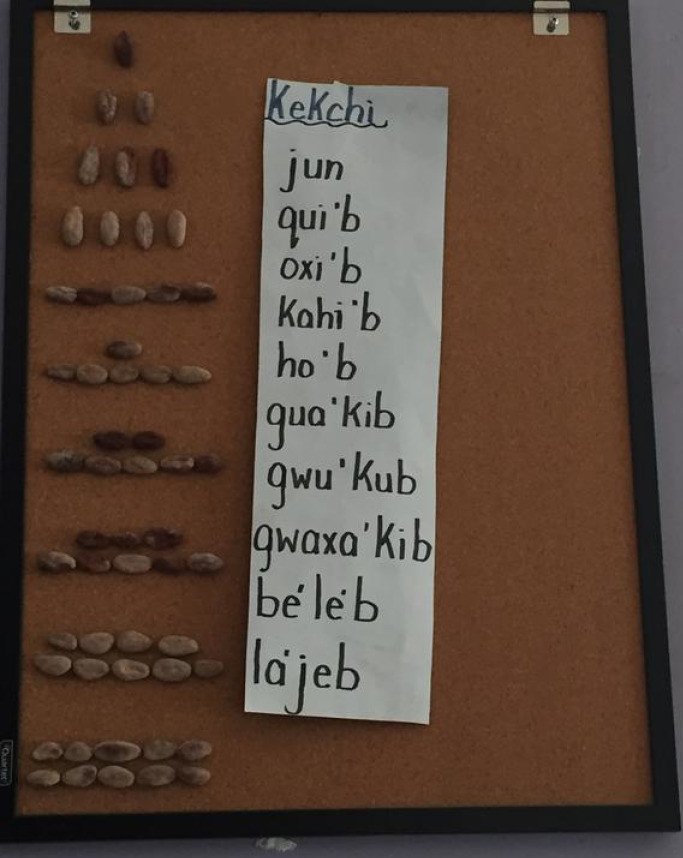 KeKchi
jun
qui'b
oxi'b
Kahi'b
ho'b
gua'kib
gwu'Kub
gwaxa'Kib
bé'lé'b
lá'jeb
Quartet